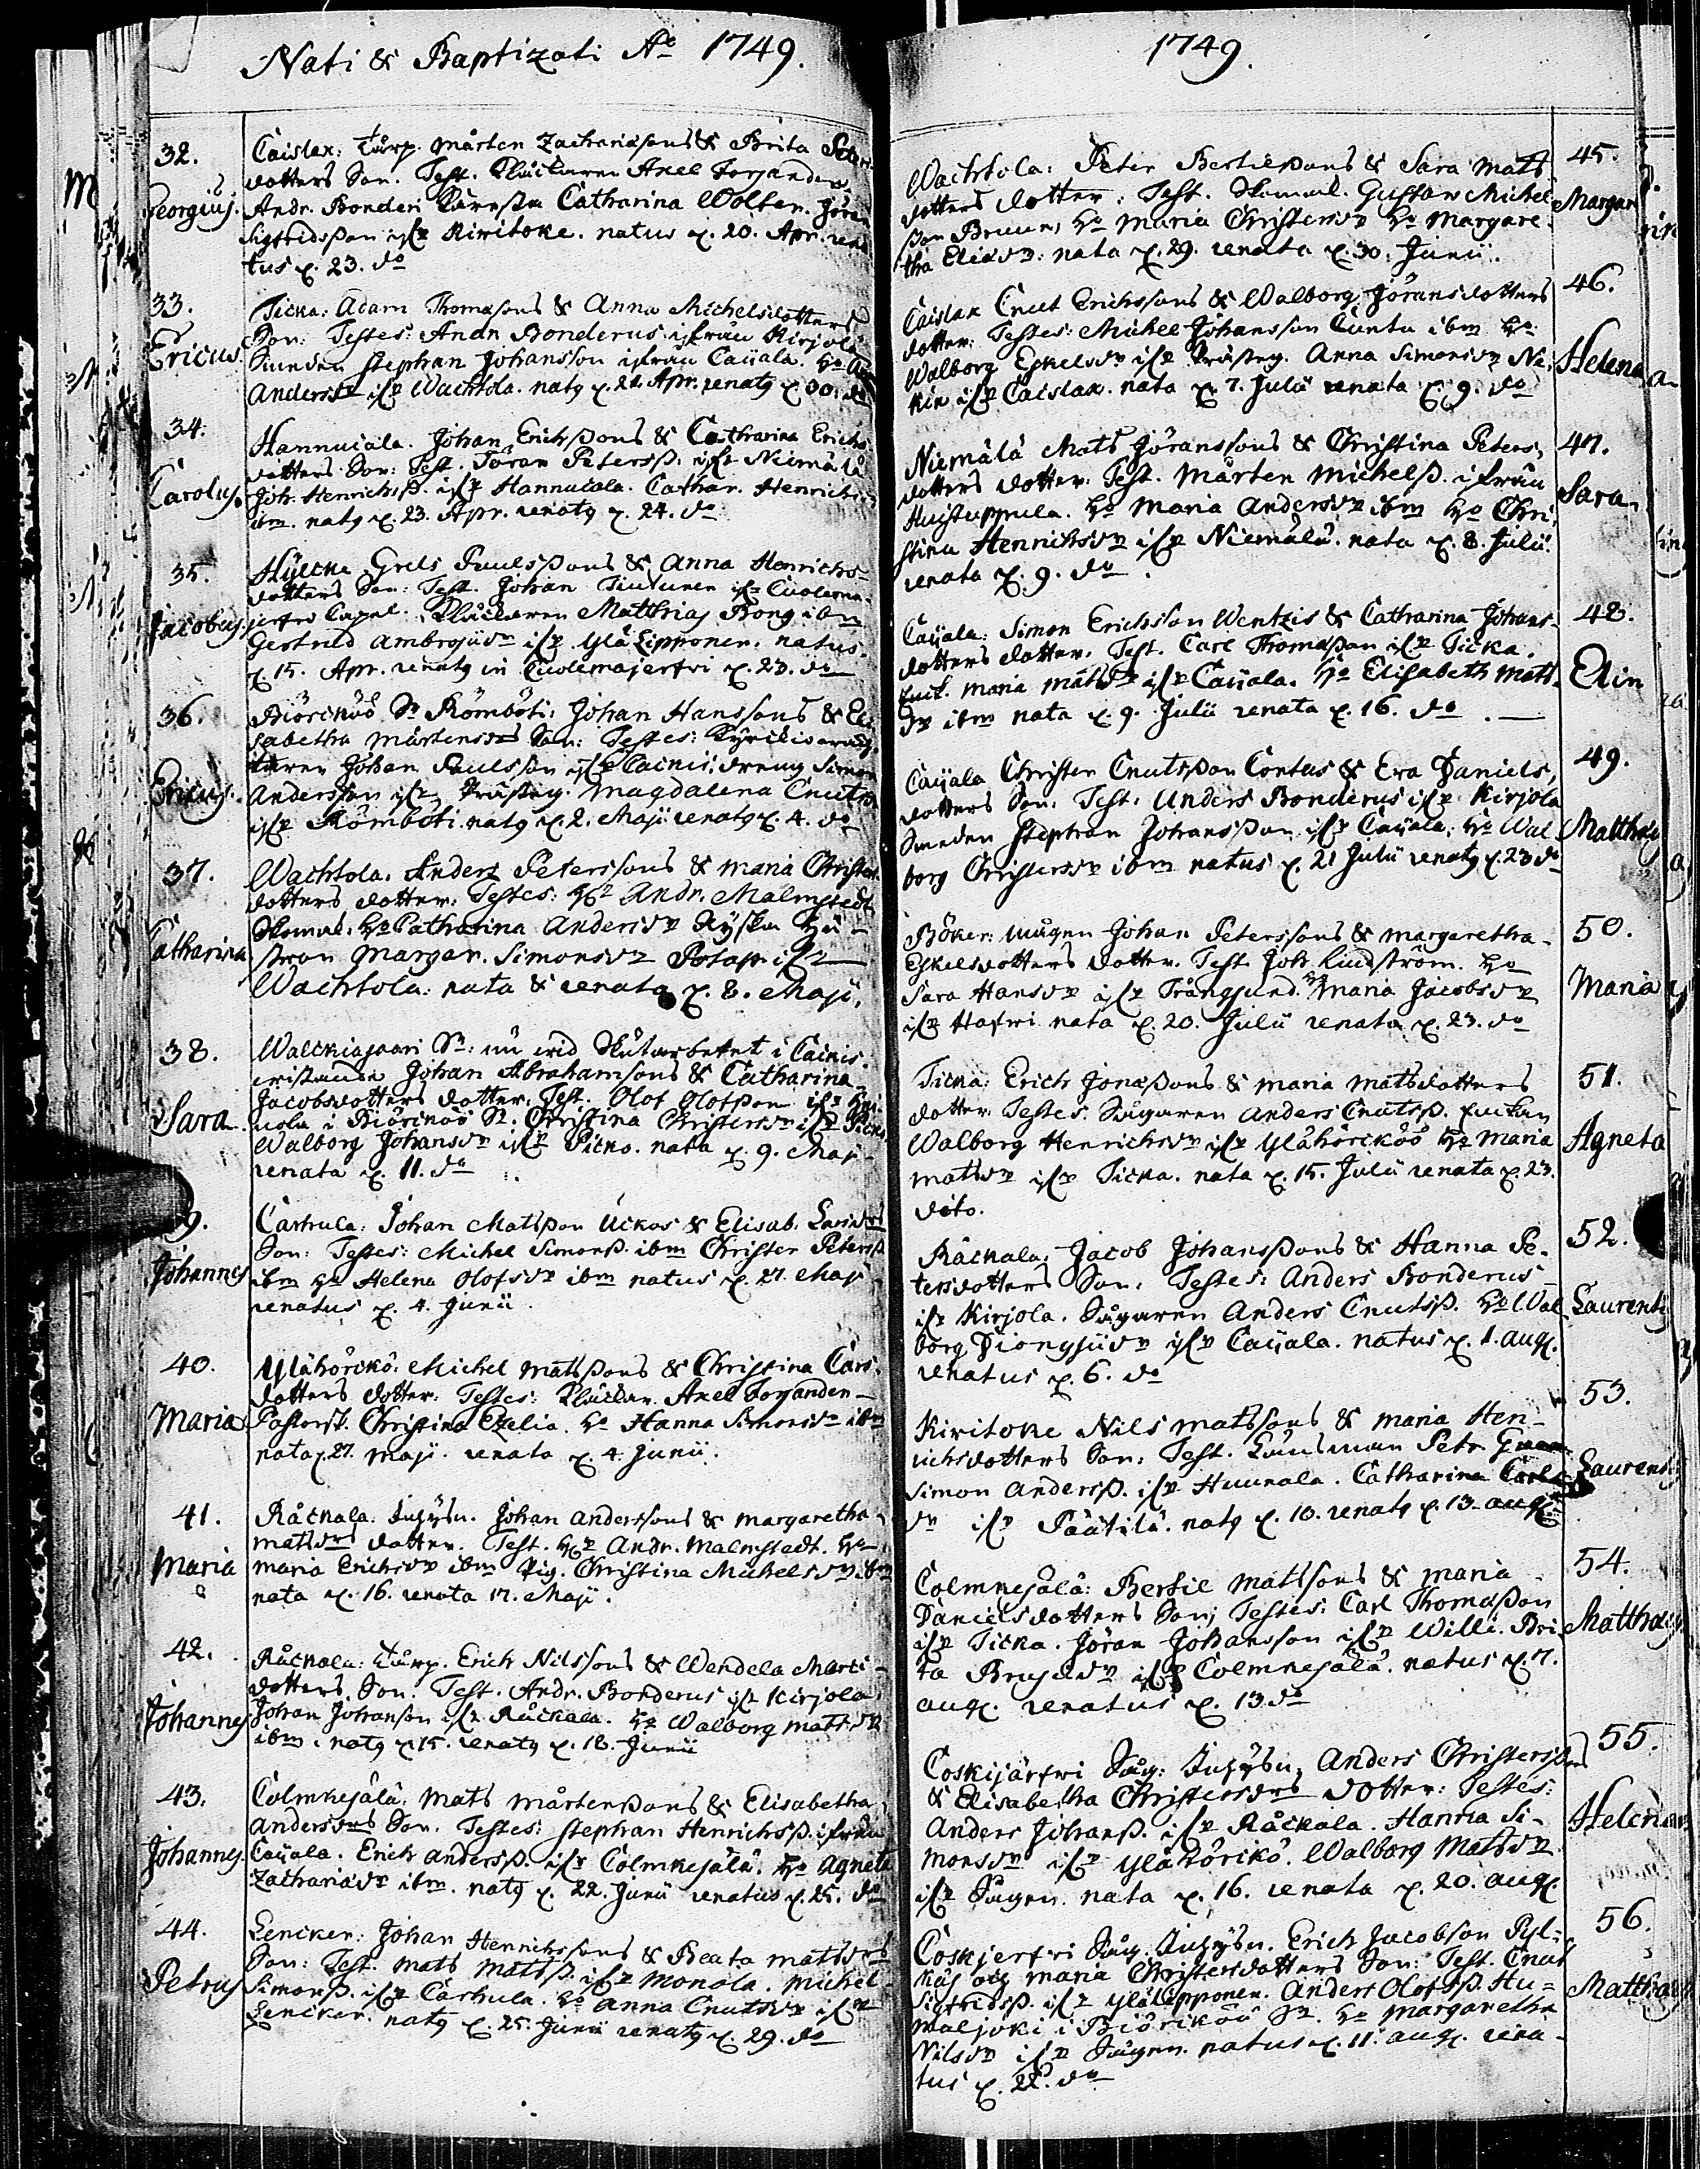 Nati & Baptizati Ao 1749.
32.
Georgius.
Caislax: Tårp. Mårten Zachariasons & Brita Peters
dotters Son. Test. Klåckaren Axel Forsanden
Andr. Bonderi Catharina Wolter. Jöran
Sigfridsson ifr Kiritoke. natus d. 20. Apr. rena
tus d. 23. do
33.
Ericus.
Ticka: Adam Thomasons & Anna Michelsdotters
Son: Testes: Andr Bonderus ifrån Kirjola
Smeden Stephan Johansson ifrån Caijala. Ho
Andersdr ifr Wachtola. natg d. 21. Apr. renatg d. 30. do
34.
Carolus.
Hannucala. Johan Erichssons & Catharina Erichs
dotters Son: Test. Jöran Peterss. ifr Niemälä
Joh: Henrichss. ifr Hannucala. Cathar. Henrichsdr
ibm. natg d. 23. Apr. renatg d. 24. do
35.
Jacobus.
Hylcke Grels Puulssons & Anna Henrichs-
dotters Son: Test. Johan Tiuturen ifr Cuolema-
jerfvi Capel. Klåckaren Matthias Bong ibm
Gertrud Ambrosiidr ifr Yläkipponen. natus
d. 15. Apr. renatg in Cuolemajerfvi d. 23. do
36.
Ericus.
Biörckö Sn Römböti: Johan Hanssons & Eli
sabetha Mårtensdrs Son: Testes: Kyrckiowach-
taren Johan Paulsson ifr Cainis. dreng Simon
Andersson ifr Prästeg. Magdalena Cnutsdr
ifr Römböti. natg d. 2. Maji renatg d. 4. do
37.
Catharina
Wachtola. Anders Peterssons & Maria Christers
dotters dotter. Testes: Hr Andr. Malmstedt
Skomak: Ho Catharina Andersdr Ryska
Margar. Simonsdr Potap ifr
Wachtola: nata & renata d. 8. Maji.
38.
Sara
Walckiasaari Sn: nu wid Skutarbetet i Cainis
wistande Johan Abrahamsons & Catharina
Jacobsdotters dotter. Test. Olof Olofson ifr
nola i Biörckö Sn: Christina Christersdr ifr
Walborg Johansdr ifr Ticko. nata d. 9. Maji
renata d. 11. do
39.
Johannes
Carhula: Johan Matsson Uckos & Elisab. Larsdrs
Son: Testes: Michel Simonss. ibm Christer Peterss
ibm Ho Helena Olofsdr ibm natus d. 27. Maji
renatus d. 4. Junii.
40.
Maria
Ylähörckö: Michel Matssons & Christina Cars-
dotters dotter. Testes: Klåckar. Axel Forsanden-
Pastorsk. Christina Ezelia. Ho Hanna Simonsdr ibm
nata d. 27. Maji. renata d. 4. Junii.
41.
Maria
Råckala. Inhysn. Johan Anderssons & Margaretha
Matsdrs dotter. Test. Hr Andr. Malmstedt. Ho
Maria Erichsdr ibm Pig. Christina Michelsdr ibm
nata d. 16. renata 17. Maji.
42.
Johannes
Råckala: Tårp. Erich Nilssons & Wendela Märts-
dotters Son. Test. Andr. Bonderus ifr Kirjola.
Johan Johanson ifr Råckala. Ho Walborg Matsdr
ibm. natg d. 15. renatg d. 18. Junii
43.
Johannes.
Colmkejälä: Mats Mårtenssons & Elisabetha
Andersdrs Son. Testes: Stephan Henrichss. ifrån
Caijala. Erich Anderss. ifr Colmkejälä. Ho Agneta
Zachariadr ibm. natg d. 22. Junii renatus d. 25. do
44.
Petrus
Lencker: Johan Henrichssons & Beata Matsdrs
Son: Test. Mats Matss. ifr Monola. Michel
Simonss. ifr Carhula. Ho Anna Cnutsdr ifr
Lencker. natg d. 25. Junii renatg d. 29. do
1749.
45.
Margar
Wachtola: Peter Bertilssons & Sara Mats
dotters dotter: Test. Skomak. Gustav Michel
son Bruun, Ho Maria Christersdr Ho Margare-
tha Eliædr: nata d. 29. renata d. 30. Junii.
46.
Helena
Caislax Cnut Erichssons & Walborg Jöransdotters
dotter: Testes: Michel Johansson Cunta ibm Ho
Walborg Eskelsdr ifr Prästeg. Anna Simonsdr Ni-
kin ifr Caislax. nata d. 7. Julii renata d. 9. do
47.
Sara
Niemälä Mats Jöranssons & Christina Peters-
dotters dotter. Test. Mårten Michelss. ifrån
Huistuppula. Ho Maria Andersdr ibm Ho Chri-
stina Henrichsdr ifr Niemälä. nata d. 8. Julii.
renata d. 9. do.
48.
Elin
Caijala: Simon Erichsson Wentzis & Catharina Johans-
dotters dotter. Test. Carl Thomasson ifr Ticka.
Enck. Maria Matsdr ifr Caijala. Ho Elisabeth Mats
dr ibm nata d. 9. Julii renata d. 16. do.
49.
Matthæg
Caijala Christer Cnutsson Contus & Eva Daniels,
dotters Son: Test. Anders Bonderus ifr Kirjola
Smeden Stephan Johansson ifr Caijala, Ho Wal-
borg Christersdr ibm natus d. 21 Julii renatg d. 23 do
50.
Maria
Böker: mågen Johan Peterssons & Margaretha
Eskelsdotters dotter. Test. Joh. Lindström. Ho
Sara Hansdr ifr Trångsund. Ho Maria Jacobsdr
ifr Hafwi. nata d. 20. Julii renata d. 23. do
51.
Agneta
Ticka: Erich Jonassons & Maria Matsdotters
dotter. Testes: Sågaren Anders Cnutss. Enckan
Walborg Henrichsdr ifr Ylähörcköö Ho Maria
Matsdr ifr Ticka. nata d. 15. Julii renata d. 23.
dito.
52.
Laurentg
Råckala: Jacob Johanssons & Hanna Pe-
tersdotters Son: Testes: Anders Bonderus
ifr Kirjola. Sågaren Anders Cnutss. Ho Wal
borg Dionysiidr ifr Caijala. natus d. 1. aug.
renatus d. 6. do
53.
Laurent
Kiritoke Nils Matssons & Maria Hen-
richsdotters Son: Test. Länsman Petr
Simon Anderss. ifr Humala. Catharina Carls
dr ifr Päätilä. natg d. 10. renatg d. 13. aug.
54.
Matthæg
Colmkejälä: Bertil Matssons & Maria
Danielsdotters Son; Testes: Carl Thomasson
ifr Ticka. Jöran Johansson ifr Willi. Bri-
ta Brusiidr ifr Colmkejälä. natus d. 7.
aug. renatus d. 13 do
55.
Helena
Coskijärfwi Såg: Inhysn, Anders Christerssons
& Elisabetha Christersdrs dotter: Testes:
Anders Johanss. ifr Råckala. Hanna Si-
monsdr ifr Ylähörikö. Walborg Matsdr
ifr Sågen. nata d. 16. renata d. 20. aug.
56.
Matthæg
Coskjerfwi Såg. Inhysn. Erich Jacobson Pyl-
käs och Maria Christersdotters Son: Test. Cnut
Sigfridss. ifr Yläkipponen. Anders Olofss. Hu-
maljoki i Biörkö Sn. Ho Margaretha
Nilsdr ifr Sågen. natus d. 11. aug. rena-
tus d. 22. do